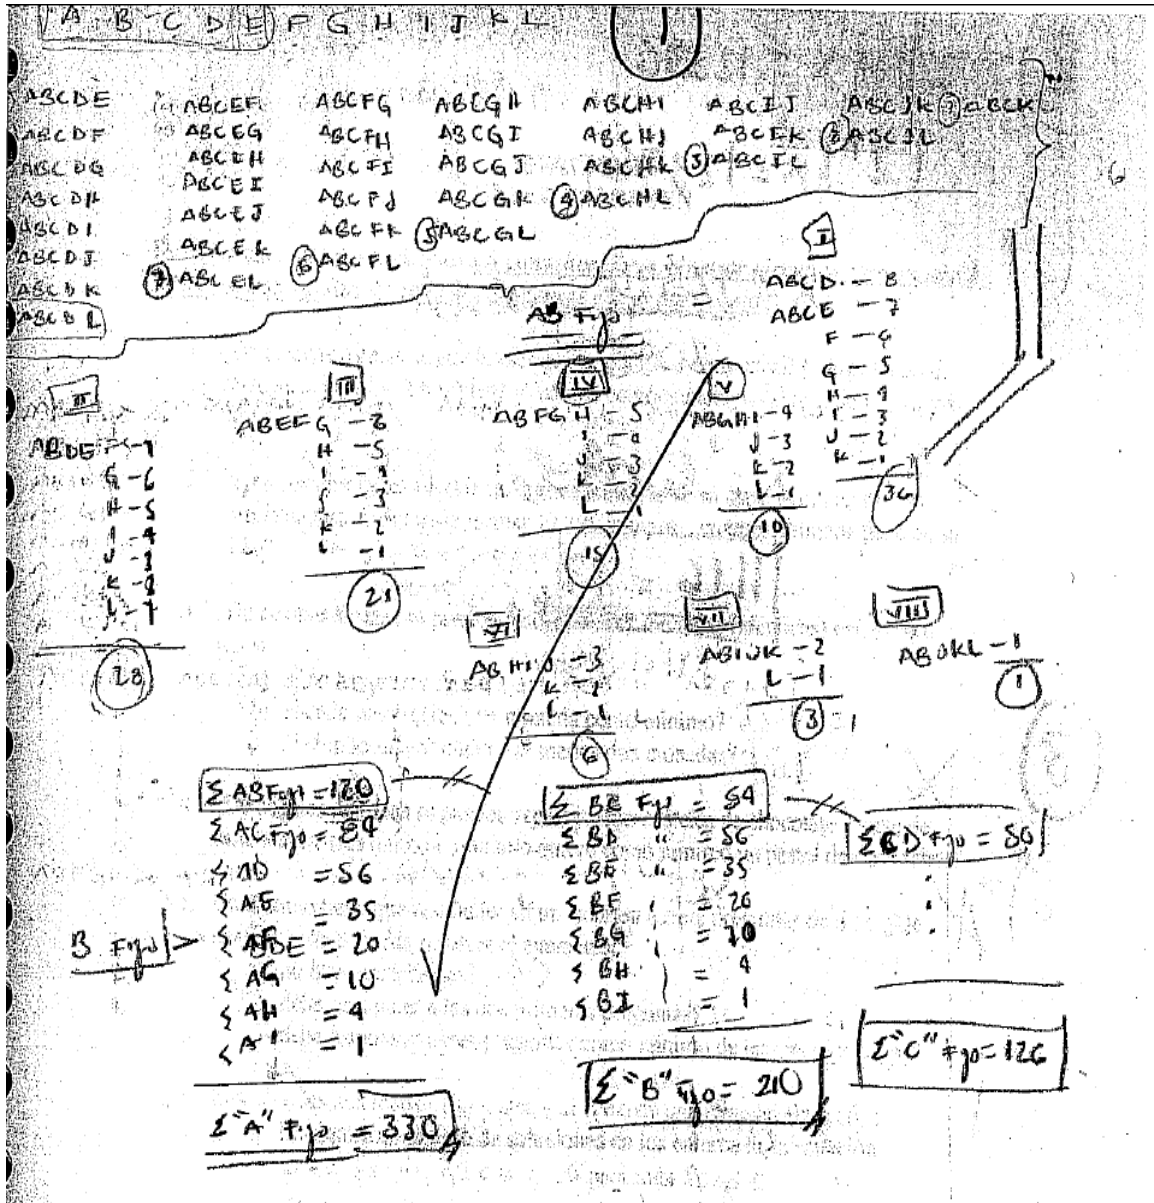 A B C D E F G H I J K L
1
ABCDE ABCEF ABCFG ABCGH ABCHI ABCIJ ABCJK ① ABCK
ABCDF ABCEG ABCFH ABCGI ABCHJ ABCIK ② ABCJL
ABCDG ABCEH ABCFI ABCGJ ABCHK ③ ABCIL
ABCDH ABCEI ABCFJ ABCGK ④ ABCHL
ABCDI ABCEJ ABCFK ⑤ ABCGL
ABCDJ ABCEK ⑥ ABCFL
ABCDK ⑦ ABCEL
ABCDL
6
AB Fijo =
I
ABCD - 8
ABCE - 7
F - 6
G - 5
H - 4
I - 3
J - 2
K - 1
36
II
ABDEF - 7
G - 6
H - 5
I - 4
J - 3
K - 2
L - 1
28
III
ABEFG - 6
H - 5
I - 4
J - 3
K - 2
L - 1
21
IV
ABFGH - 5
I - 4
J - 3
K - 2
L - 1
15
V
ABGHI - 4
J - 3
K - 2
L - 1
10
VI
ABHIJ - 3
K - 2
L - 1
6
VII
ABIJK - 2
L - 1
3
VIII
ABJKL - 1
1
Σ AB Fijo = 120
Σ AC Fijo = 84
Σ AD = 56
Σ AE = 35
B Fijo > Σ AF = 20
Σ AG = 10
Σ AH = 4
Σ AI = 1
Σ "A" Fijo = 330
Σ BC Fijo = 84
Σ BD " = 56
Σ BE " = 35
Σ BF " = 20
Σ BG " = 10
Σ BH = 4
Σ BI = 1
Σ "B" Fijo = 210
Σ CD Fijo = 56
Σ "C" Fijo = 126